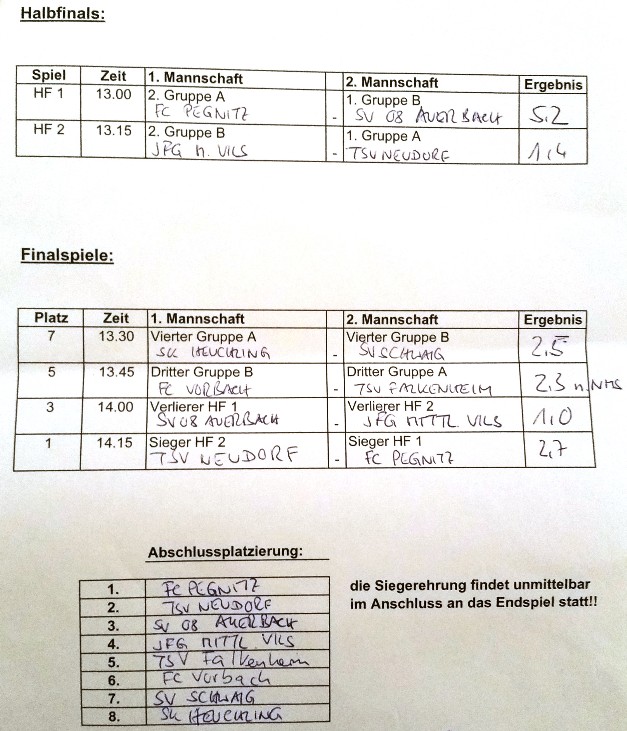 Halbfinals:
Spiel Zeit 1. Mannschaft 2. Mannschaft Ergebnis
HF 1 13.00 2. Gruppe A 1. Gruppe B
FC PEGNITZ - SV 08 AUERBACH 5:2
HF 2 13.15 2. Gruppe B 1. Gruppe A
JFG M. VILS - TSV NEUDORF 1:4
Finalspiele:
Platz Zeit 1. Mannschaft 2. Mannschaft Ergebnis
7 13.30 Vierter Gruppe A Vierter Gruppe B
SK HEUCHLING - SV SCHWAIG 2:5
5 13.45 Dritter Gruppe B Dritter Gruppe A
FC VORBACH - TSV FALKENHEIM 2:3 n. NMS
3 14.00 Verlierer HF 1 Verlierer HF 2
SV 08 AUERBACH - JFG MITTL. VILS 1:0
1 14.15 Sieger HF 2 Sieger HF 1
TSV NEUDORF - FC PEGNITZ 2:7
Abschlussplatzierung:
1. FC PEGNITZ
2. TSV NEUDORF
3. SV 08 AUERBACH
4. JFG MITTL. VILS
5. TSV Falkenheim
6. FC Vorbach
7. SV SCHWAIG
8. SK HEUCHLING
die Siegerehrung findet unmittelbar
im Anschluss an das Endspiel statt!!